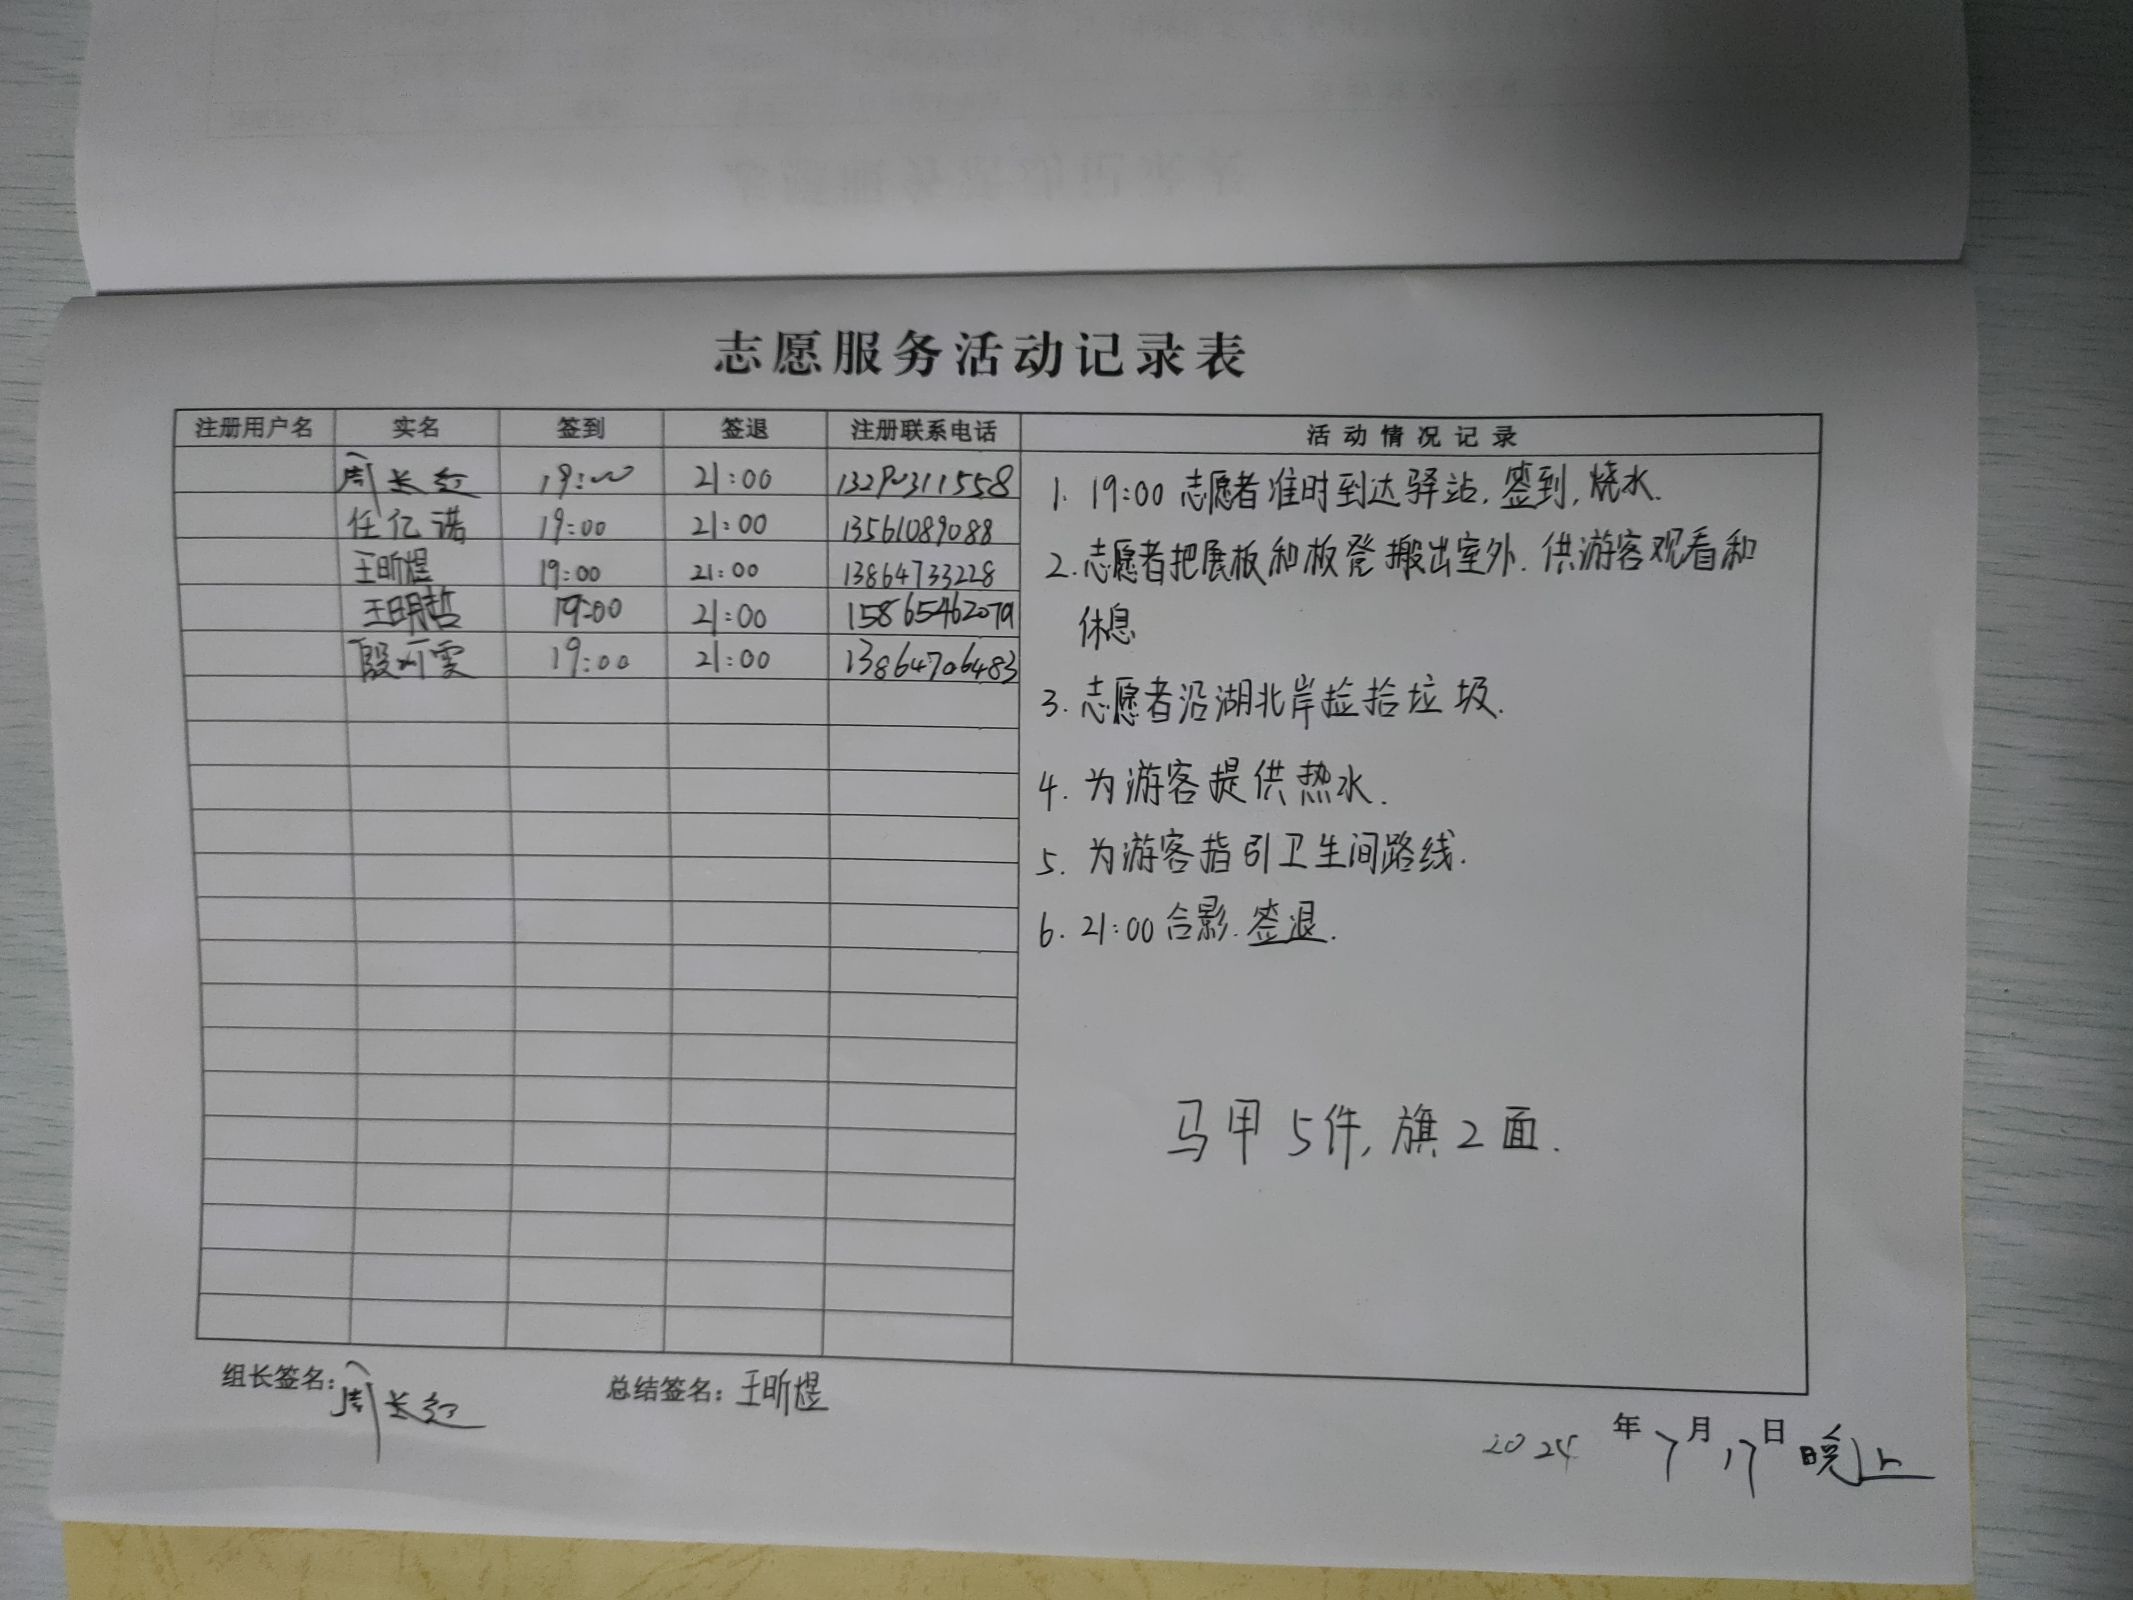 志愿服务活动记录表
注册用户名 实名 签到 签退 注册联系电话 活动情况记录
周长红 19:00 21:00 13290311558
任亿诺 19:00 21:00 13561089088
王昕煜 19:00 21:00 13864733228
王明哲 19:00 21:00 15865462079
殷可雯 19:00 21:00 13864706483
1. 19:00 志愿者准时到达驿站,签到,烧水.
2. 志愿者把展板和板凳搬出室外.供游客观看和
休息
3. 志愿者沿湖北岸捡拾垃圾.
4. 为游客提供热水.
5. 为游客指引卫生间路线.
6. 21:00 合影.签退.
马甲5件,旗2面.
组长签名:周长红 总结签名:王昕煜
2024年7月17日晚上